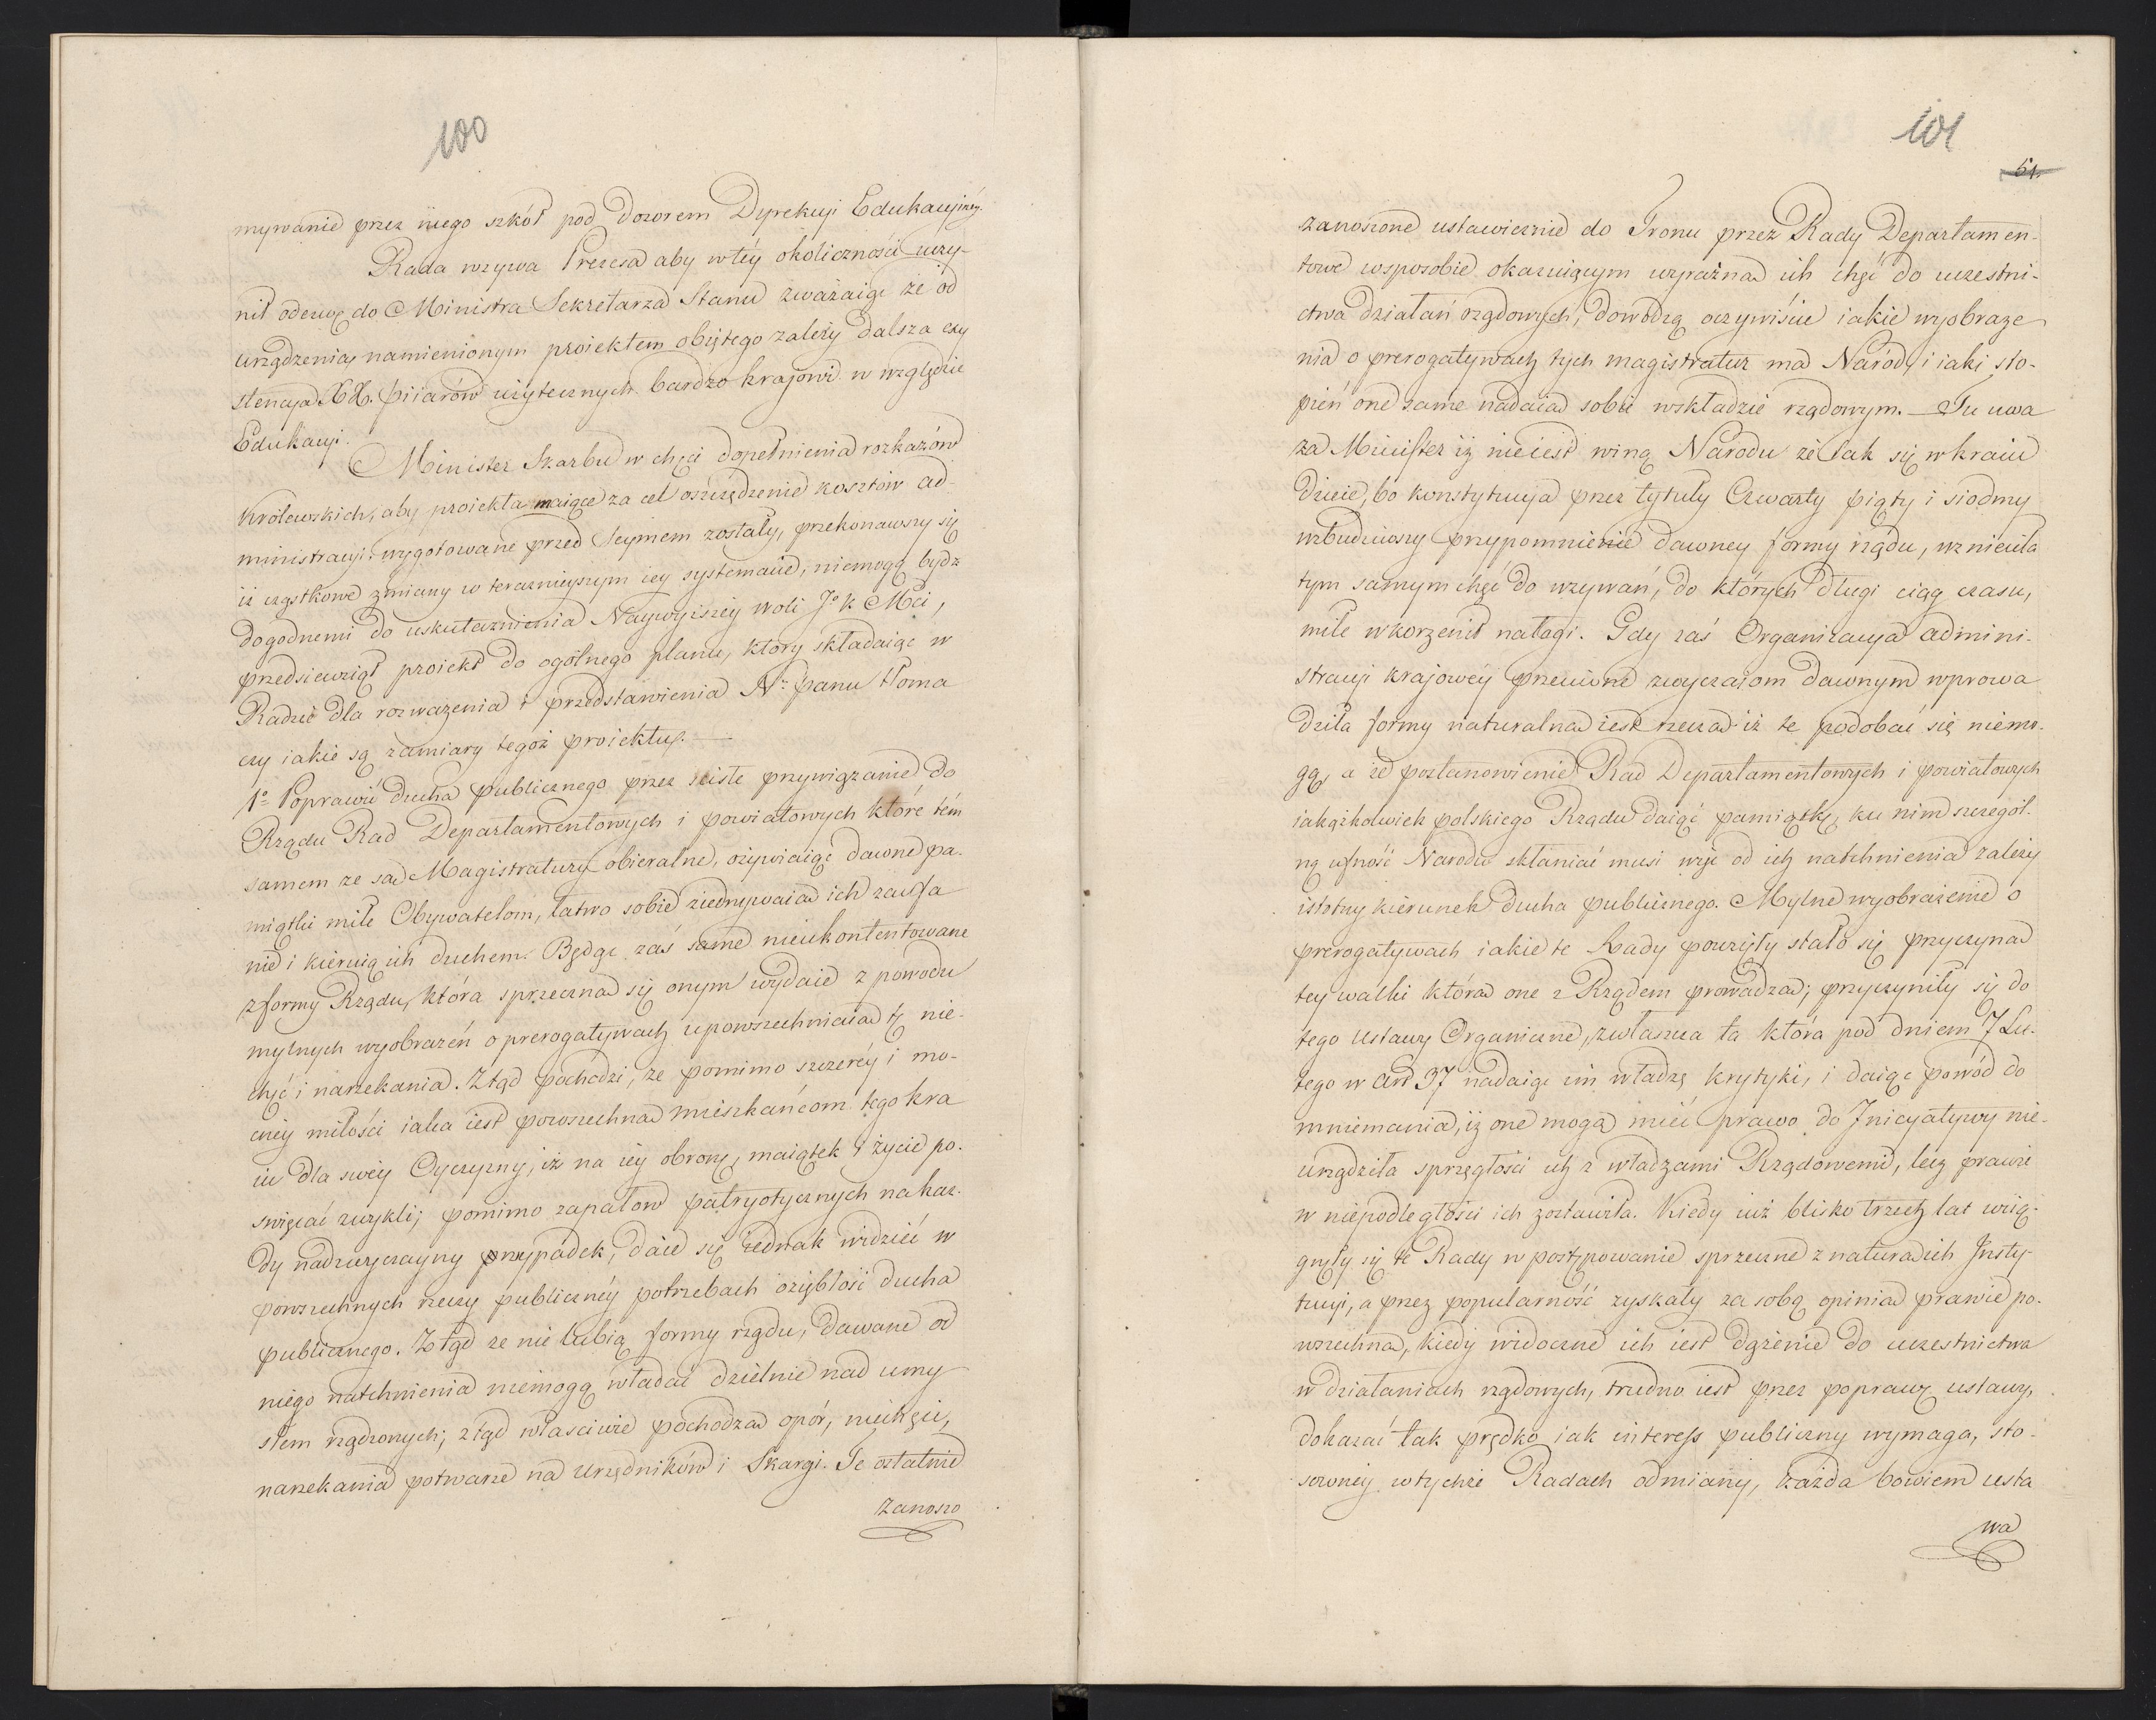 100
mywanie przez niego szkół pod dozorem Dyrekcyi Edukacyjnéy.
Rada wzywa Prezesa aby w téy okoliczności uczy-
nił odezwę do Ministra Sekretarza Stanu zważaiąc że od
urządzenia namienionym proiektem obiętego zależy dalsza exy
stencya XX. Piiarów użytecznych bardzo krajowi w względzie
Edukacyi.
Minister Skarbu w chęci dopełnienia rozkazów
Królewskich, aby proiekta maiące za cel oszczędzenie kosztów ad-
ministracyi wygotowane przed Seymem zostały, przekonawszy się
iż cząstkowe zmiany w teraznieyszym iey systemacie, niemogą bydź
dogodnemi do uskutecznienia Naywyższey woli Jo K Mci,
przedsiewziął proiekt do ogólnego planu, który składaiąc w
Radzie dla rozważenia i przedstawienia Nu Panu tłoma
czy iakie są zamiary tegoż proiektu. —
1o Poprawić ducha publicznego przez sciste przywiązanie do
Rządu Rad Departamentowych i powiatowych które tém
samem ze są Magistratury obieralne, ożywiaiąc dawne pa-
miątki miłe Obywatelom, łatwo sobie ziednywaia ich zaufa
nie i kieruią ich duchem. Będąc zaś same nieukontentowane
z formy Rządu, która sprzeczna się onym wydaie z powodu
mylnych wyobrażeń o prerogatywach upowszechniaia tę nie-
chęć i narzekania. Ztąd pochodzi, że pomimo szczeréy i mo-
cnéy miłości iaka iest powszechna mieszkańcom tego kra
iu dla swéy Oyczyzny, iż na iéy obronę, maiątek i życie po-
święcać zwykli; pomimo zapałów patryotycznych na każ-
dy nadzwyczayny przypadek, daie się iednak widzieć w
powszechnych rzeczy publicznéy potrzebach oziębłość ducha
publicznego. Ztąd ze nie lubią formy rządu, dawane od
niego natchnienia niemogą władać dzielnie nad umy
słem rządzonych; ztąd właściwie pochodza opór, niechęci,
narzekania potwarze na Urzędników i Skargi. Te ostatnie
zanoszo
101
51.
zanoszone ustawicznie do Tronu przez Rady Departamen-
towe w sposobie okazuiącym wyraźna ich chęć do uczestni-
ctwa działań rządowych, dowodzą oczywiście iakie wyobraże
nia o prerogatywach tych magistratur ma Naród, i iaki sto-
pień one same nadaia sobie w składzie rządowym. — Tu uwa
za Minister iż nieiest winą Narodu że tak się w kraiu
dzieie, bo konstytucya przez tytuły Czwarty piąty i siódmy
wzbudziwszy przypomnienie dawney formy rządu, wznieciła
tym samym chęć do wzywań, do których długi ciąg czasu,
miłe wkorzenił nałogi. Gdy zaś Organizacya admini-
stracyi krajowéy przeciwne zwyczaiom dawnym wprowa
dziła formy naturalna iest rzecza iż te podobać się niemo-
gą, a że postanowienie Rad Departamentowych i powiatowych
iakążkolwiek polskiego Rządu daiąc pamiątkę, ku nim szczegól-
ną ufność Narodu skłaniać musi więc od ich natchnienia zależy
istotny kierunek ducha publicznego. Mylne wyobrażenie o
prerogatywach iakie te Rady powzięły stało się przyczyna
tey walki która one z Rządem prowadza; przyczyniły się do
tego Ustawy Organiczne, zwłaszcza ta która pod dniem 7 Lu-
tego w Art 37 nadaiąc im władzę krytyki, i daiąc powód do
mniemania, iż one mogą mieć prawo do Jnicyatywy nie-
urządziła sprzęgłości ich z władzami Rządowemi, lecz prawie
w niepodległości ich zostawiła. Kiedy iuż blisko trzech lat wcią-
gnęły się te Rady w postępowanie sprzeczne z natura ich Jnsty-
tucyi, a przez popularność zyskały za sobą opinia prawie po-
wszechna, kiedy widoczne ich iest dążenie do uczestnictwa
w działaniach rządowych, trudno iest przez poprawę ustawy,
dokazać tak prędko iak interess publiczny wymaga, sto-
sownéy w tychże Radach odmiany, każda bowiem usta
wa